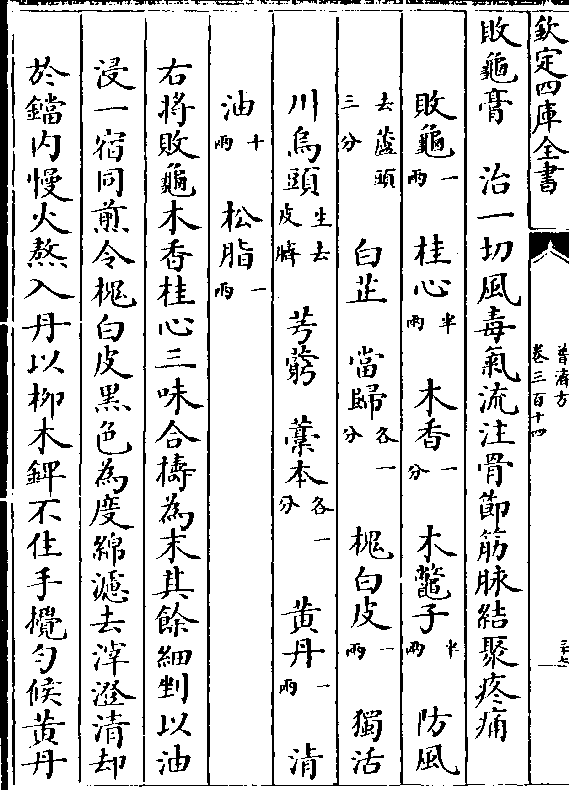 欽定四庫全書
普濟方
卷三百十四
敗龜膏 治一切風毒氣流注骨節筋脉結聚疼痛
敗龜一兩 桂心半兩 木香一分 木鼈子半兩 防風
去蘆頭三分 白芷 當歸各一分 槐白皮一兩 獨活
川烏頭生去皮臍 芎藭 藁本各一分 黄丹一兩 清
油十兩 松脂一兩
右將敗龜木香桂心三味合擣為末其餘細剉以油
浸一宿同煎令槐白皮黑色為度綿濾去滓澄清却
於鐺内慢火熬入丹以柳木錍不住手攪勻候黄丹